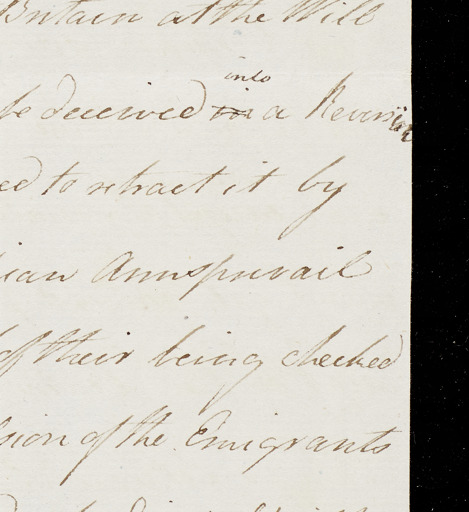 Britain at the Will
into
be deceived in a Reversion
ed to retract it by
ian Arms prevail
of their being checked
sion of the Emigrants